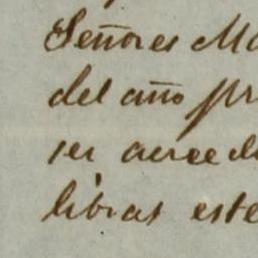 Señores Ma
del año pr
ser acreed
libras este